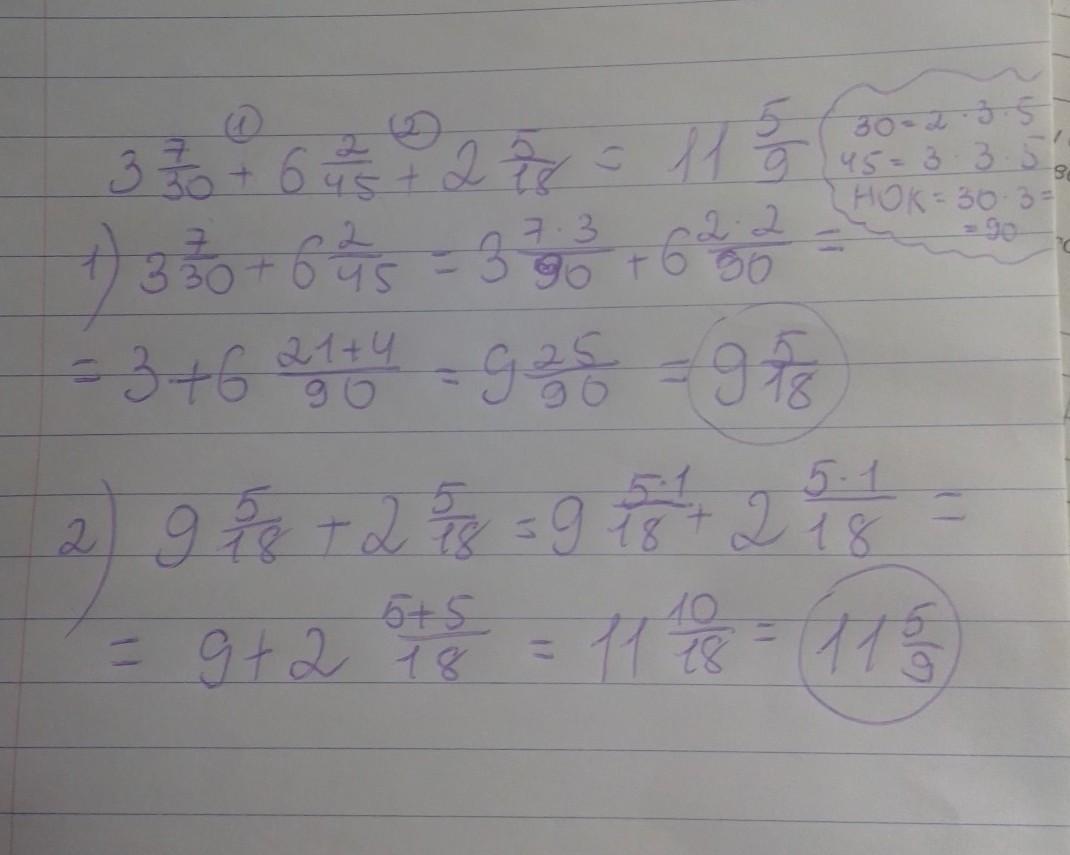 ① ②
3 7/30 + 6 2/45 + 2 5/18 = 11 5/9
30 = 2 · 3 · 5
45 = 3 · 3 · 5
НОК = 30 · 3 =
= 90
1) 3 7/30 + 6 2/45 = 3 7·3/90 + 6 2·2/90 =
= 3+6 21+4/90 = 9 25/90 = 9 5/18
2) 9 5/18 + 2 5/18 = 9 5·1/18 + 2 5·1/18 =
= 9+2 5+5/18 = 11 10/18 = 11 5/9